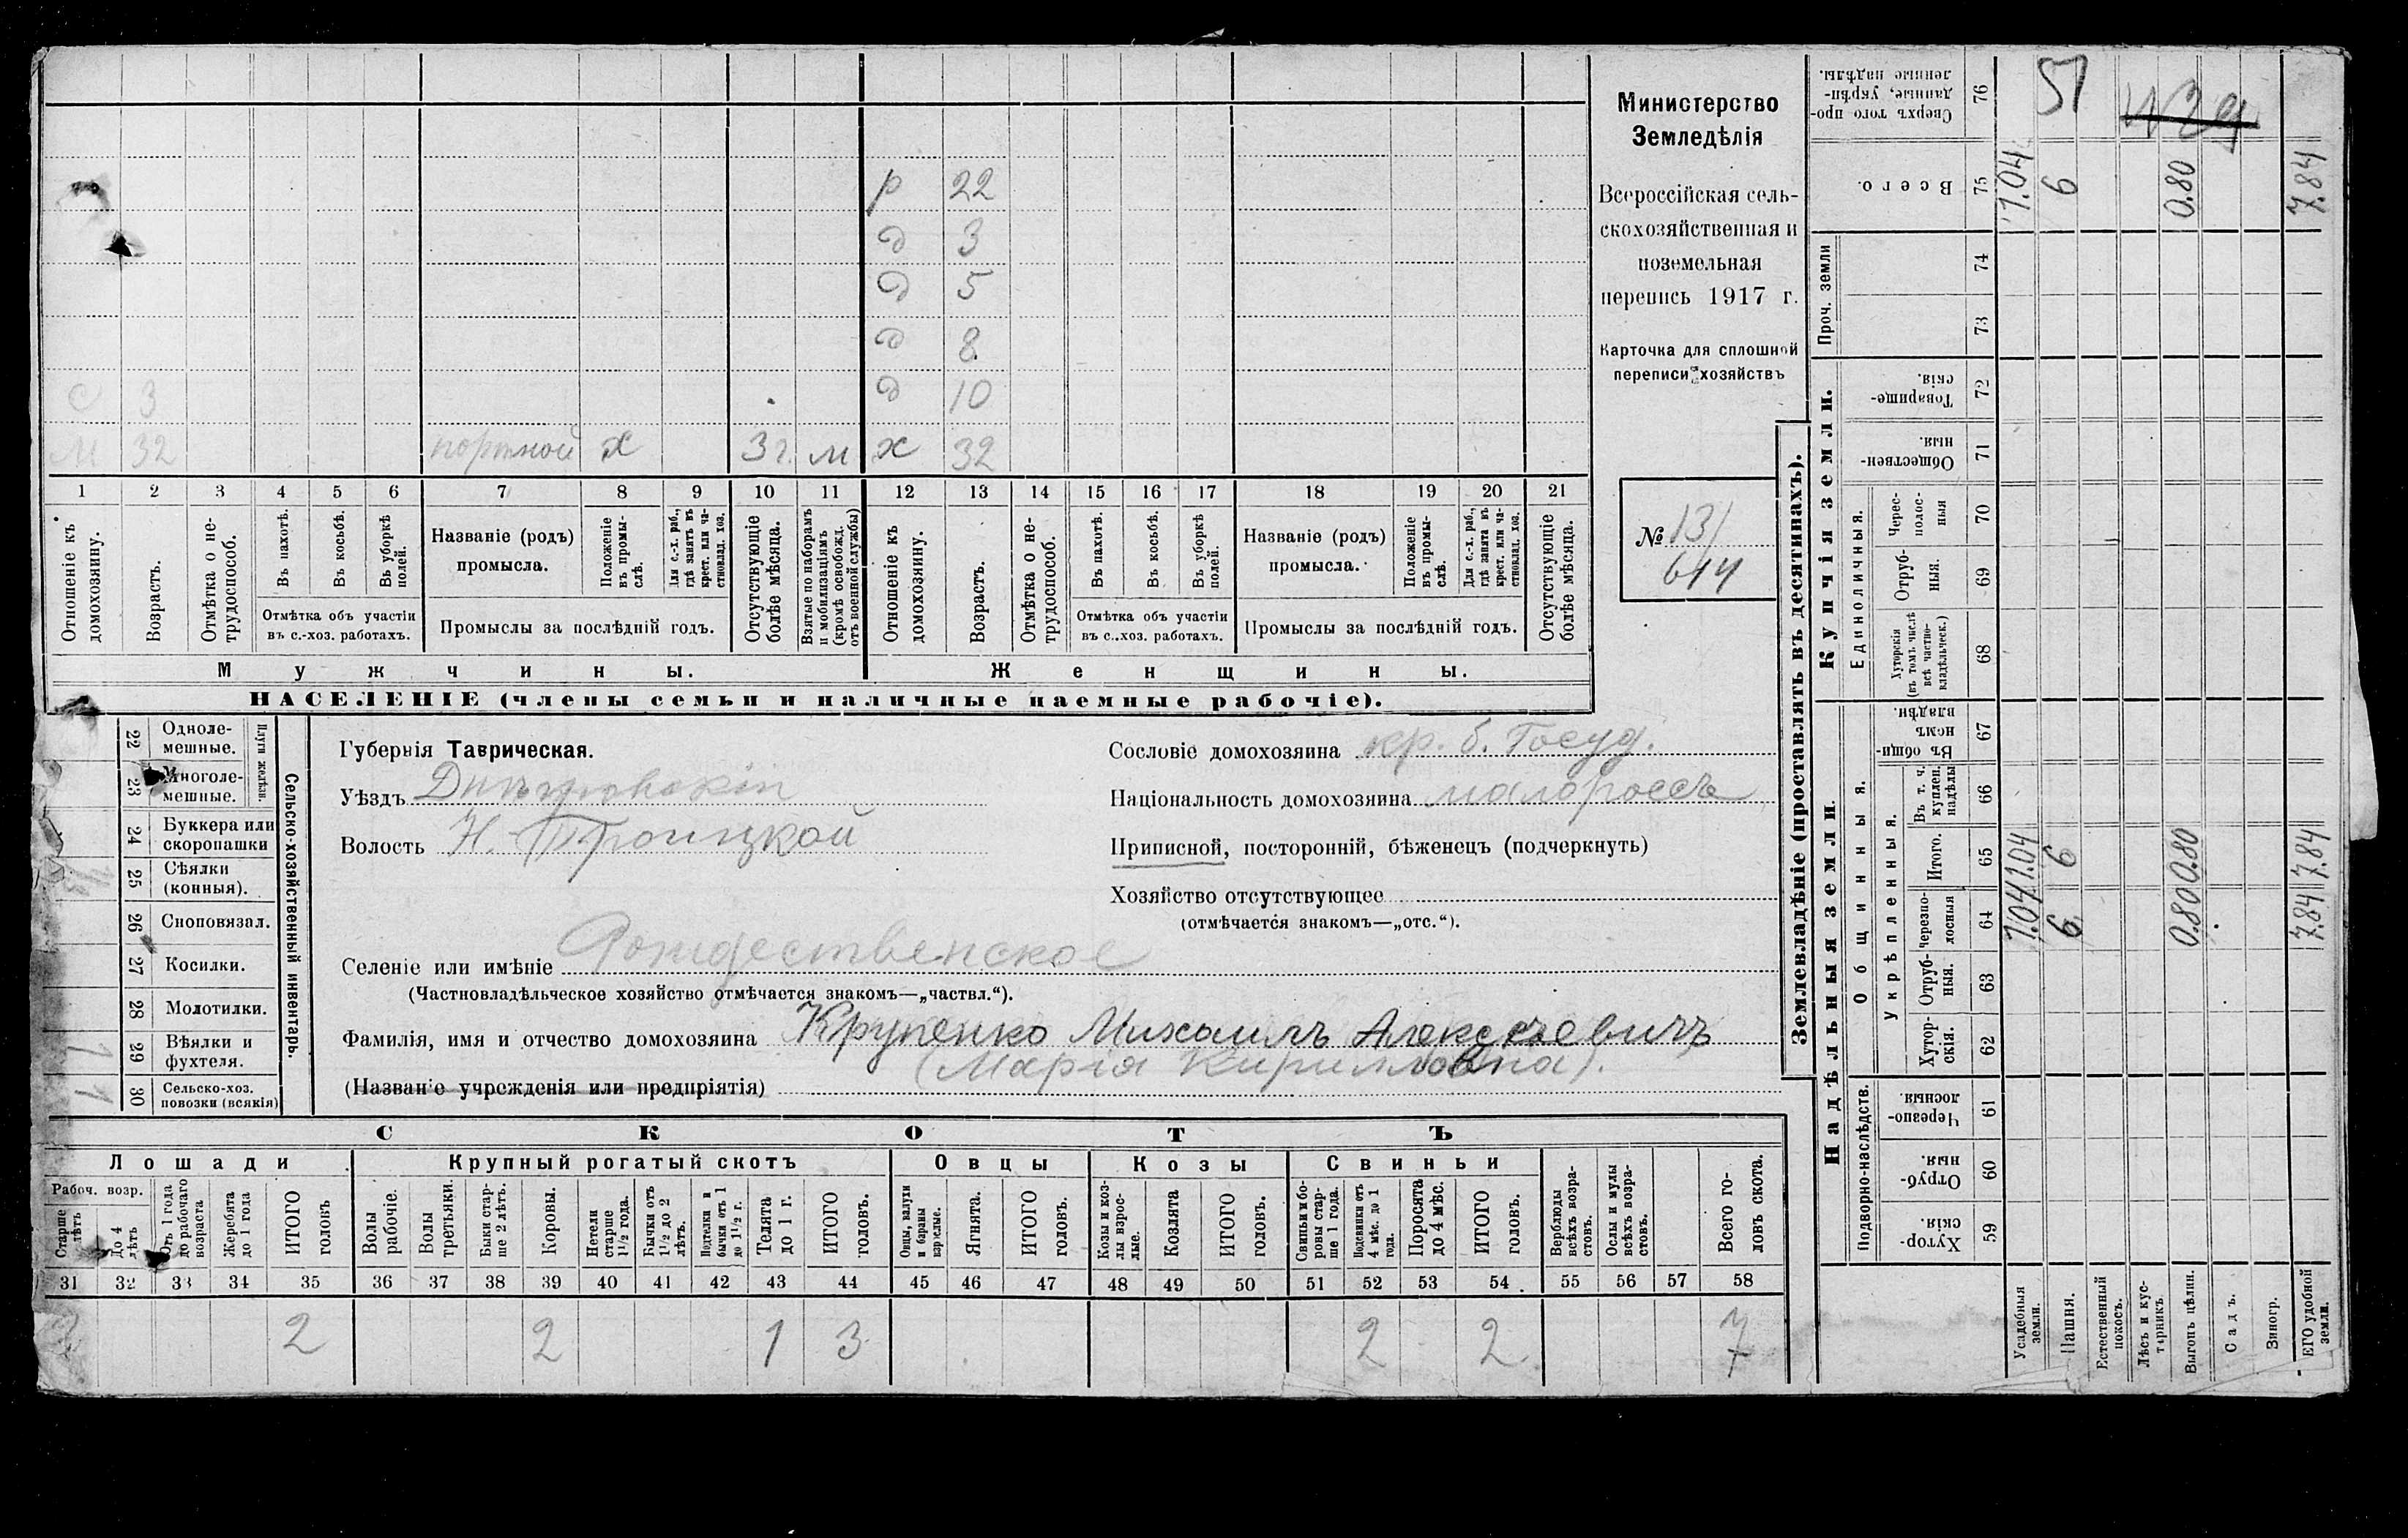 р 22
д 3
д 5
д 8
с 3 д 10
м 32 портной х 3 г. м х 32
1 2 3 4 5 6 7 8 9 10 11 12 13 14 15 16 17 18 19 20 21
Отношеніе къ домохозяину.
Возрастъ.
Отмѣтка о не-трудоспособ.
Въ пахотѣ.
Въ косьбѣ.
Въ уборкѣ полей.
Отмѣтка объ участіи
въ с.-хоз. работахъ.
Названіе (родъ)
промысла.
Положеніе въ промы-слѣ.
Для с.-х. раб., гдѣ занятъ въ крест. или ча-стновлад. хоз.
Промыслы за послѣдній годъ.
Отсутствующіе болѣе мѣсяца.
Взятые по наборамъ и мобилизаціямъ (кромѣ освобожд. отъ военной службы)
Отношеніе къ домохозяину.
Возрастъ.
Отмѣтка о не-трудоспособ.
Въ пахотѣ.
Въ косьбѣ.
Въ уборкѣ полей.
Отмѣтка объ участіи
въ с.-хоз. работахъ.
Названіе (родъ)
промысла.
Положеніе въ промы-слѣ.
Для с.-х. раб., гдѣ занята въ крест. или ча-стновлад. хоз.
Промыслы за послѣдній годъ.
Отсутствующіе болѣе мѣсяца.
Мужчины.
Женщины.
НАСЕЛЕНІЕ (члены семьи и наличные наемные рабочіе).
Министерство
Земледѣлія
Всероссійская сель-
скохозяйственная и
поземельная
перепись 1917 г.
Карточка для сплошной
переписи хозяйствъ
№ 131
644
22 Одноле-мешные.
23 Многоле-мешные.
Плуги желѣзн.
24 Буккера или скоропашки
25 Сѣялки (конныя).
26 Сноповязал.
27 Косилки.
28 Молотилки.
29 Вѣялки и фухтеля. 1
30 Сельско-хоз. повозки (всякія) 1
Сельско-хозяйственный инвентарь.
Губернія Таврическая.
Уѣздъ Днѣпровскій
Волость Н. Троицкой
Сословіе домохозяина кр. б. Госуд.
Національность домохозяина малороссъ
Приписной, посторонній, бѣженецъ (подчеркнуть)
Хозяйство отсутствующее
(отмѣчается знакомъ—„отс.“).
Селеніе или имѣніе Рождественское
(Частновладѣльческое хозяйство отмѣчается знакомъ—„частвл.“).
Фамилія, имя и отчество домохозяина Крупенко Михаилъ Алексѣевичъ
(Марія Кирилловна).
(Названіе учрежденія или предпріятія)
СКОТЪ
Лошади Крупный рогатый скотъ Овцы Козы Свиньи
Рабоч. возр.
Старше лѣтъ
До 4 лѣтъ
Отъ 1 года до рабочаго возраста
Жеребята до 1 года
ИТОГО головъ
Волы рабочіе.
Волы третьяки.
Быки стар-ше 2 лѣтъ.
Коровы.
Нетели старше 1½ года.
Бычки отъ 1½ до 2 лѣтъ.
Подтелки и бычки отъ 1 до 1½ г.
Телята до 1 г.
ИТОГО головъ.
Овцы, валухи и бараны взрослые.
Ягнята.
ИТОГО головъ.
Козы и коз-лы взрос-лые.
Козлята
ИТОГО головъ.
Свиньи и бо-ровы стар-ше 1 года.
Подсвинки отъ 4 мѣс. до 1 года.
Поросята до 4 мѣс.
ИТОГО головъ.
Верблюды всѣхъ возра-стовъ.
Ослы и мулы всѣхъ возра-стовъ.
Всего го-ловъ скота.
31 32 33 34 35 36 37 38 39 40 41 42 43 44 45 46 47 48 49 50 51 52 53 54 55 56 57 58
2 2 1 3 2 2 7
Землевладѣніе (проставлять въ десятинахъ).
Купчія земли.
Надѣльныя земли.
Проч. земли
Единоличныя.
Общинныя.
Укрѣпленныя.
Подворно-наслѣдств.
Сверхъ того про-данные, укрѣп-ленные надѣлы. 76 51
Всего. 75 1.04 6 0.80 7.84
74
73
Товарище-скія. 72
Обществен-ныя. 71
Черес-полос-ныя 70
Отруб-ныя. 69
Хуторскія (въ томъ числѣ всѣ частно-владѣльческ.) 68
Въ общи-номъ владѣн. 67
Въ т. ч. куплен. надѣлы 66
Итого. 65 1.04 6 0.80 7.84
Черезпо-лосныя 64 1.04 6 0.80 7.84
Отруб-ныя. 63
Хутор-скія. 62
Черезпо-лосныя. 61
Отруб-ныя. 60
Хутор-скія. 59
Усадебныя земли.
Пашня.
Естественный покосъ.
Лѣсъ и кус-тарникъ.
Выгонъ цѣлин.
Садъ.
Виногр.
ЕГО удобной земли.